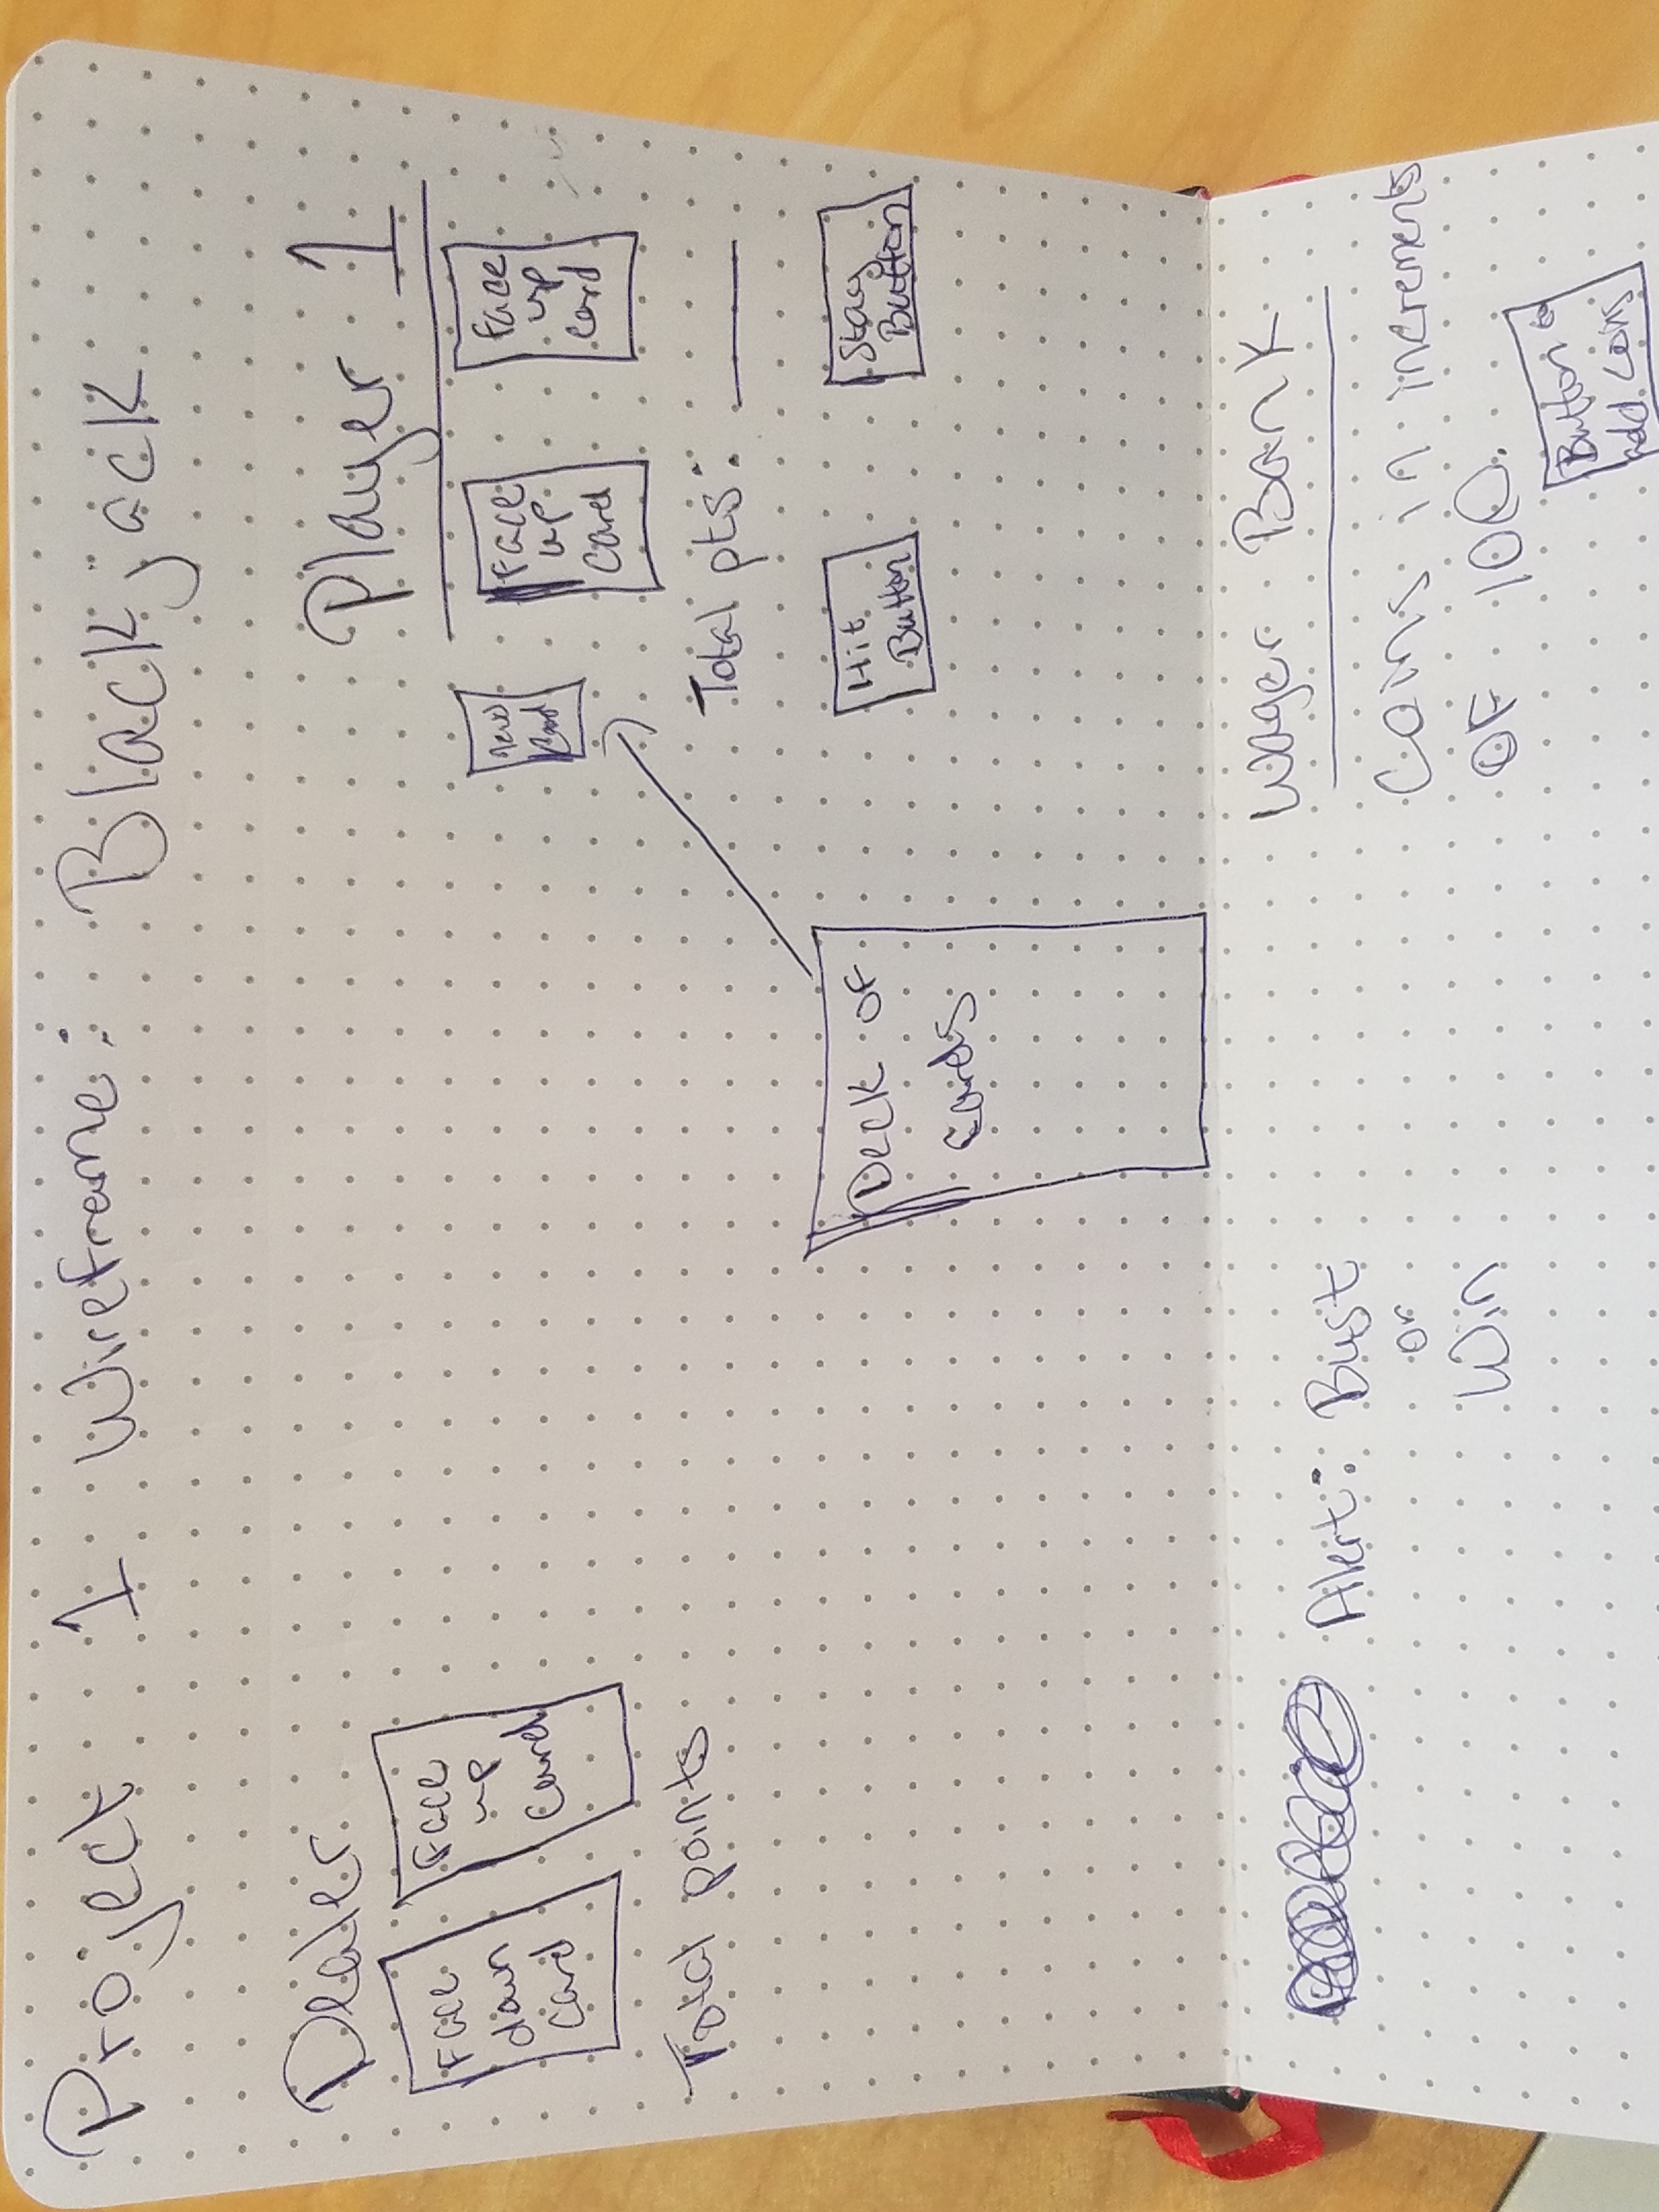 Project 1 Wireframe: Blackjack
Dealer
Face
down
Card
Face
up
Card
Total points
Player 1
new
Card
Face
up
Card
Face
up
Card
Total pts:
Hit
Button
Stay
Button
Deck of
Cards
Alert: Bust
or
Win
Wager Bank
Coins in increments
OF 100.
Button to
add coins